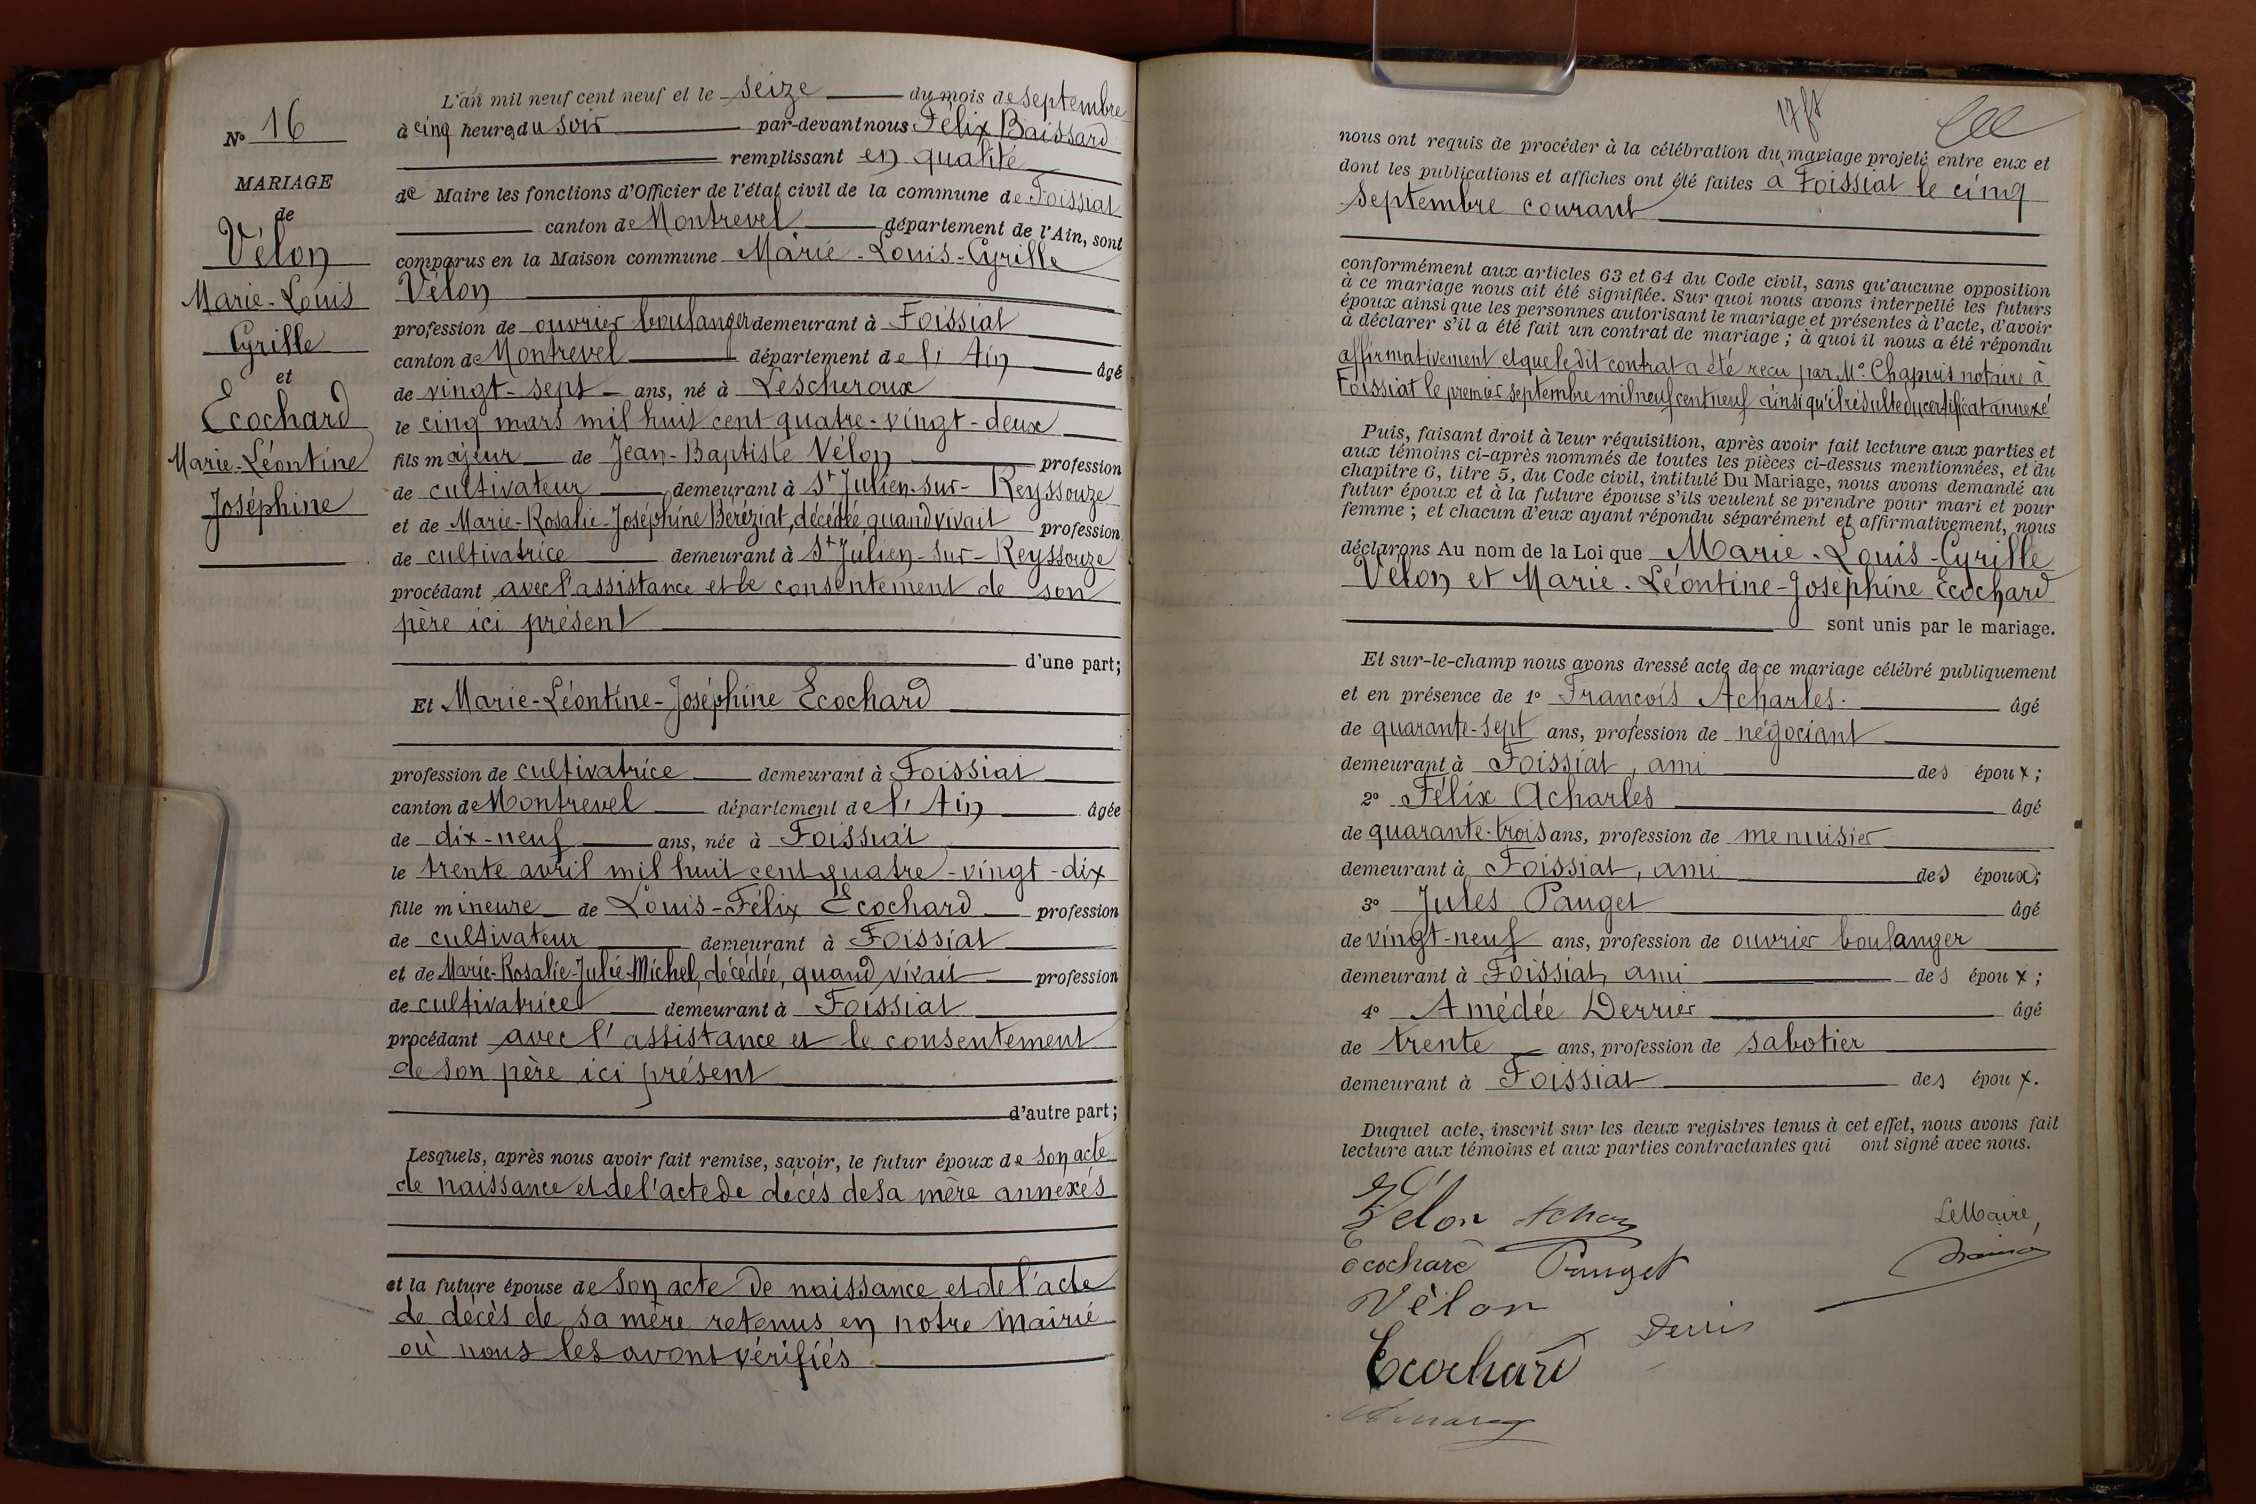 N° 16
MARIAGE
de
Vélon
Marie-Louis
Cyrille
et
Ecochard
Marie-Léontine
Joséphine
L'an mil neuf cent neuf et le seize du mois de septembre
à cinq heures du soir par-devant nous Félix Baissard
remplissant en qualité
de Maire les fonctions d'Officier de l'état civil de la commune de Foissiat
canton de Montrevel département de l'Ain, sont
comparus en la Maison commune Marie-Louis-Cyrille
Vélon
profession de ouvrier boulanger demeurant à Foissiat
canton de Montrevel département de l'Ain âgé
de vingt-sept ans, né à Lescheroux
le cinq mars mil huit cent quatre-vingt-deux
fils majeur de Jean-Baptiste Vélon profession
de cultivateur demeurant à St Julien-sur-Reyssouze
et de Marie-Rosalie-Joséphine Beréziat, décédée, quand vivait profession
de cultivatrice demeurant à St Julien-sur-Reyssouze
procédant avec l'assistance et le consentement de son
père ici présent
d'une part;
Et Marie-Léontine-Joséphine Ecochard
profession de cultivatrice demeurant à Foissiat
canton de Montrevel département de l'Ain âgée
de dix-neuf ans, née à Foissiat
le trente avril mil huit cent quatre-vingt-dix
fille mineure de Louis-Félix Ecochard profession
de cultivateur demeurant à Foissiat
et de Marie-Rosalie-Julie-Michel, décédée, quand vivait profession
de cultivatrice demeurant à Foissiat
procédant avec l'assistance et le consentement
de son père ici présent
d'autre part;
Lesquels, après nous avoir fait remise, savoir, le futur époux de son acte
de naissance et de l'acte de décès de sa mère annexés
et la future épouse de son acte de naissance et de l'acte
de décès de sa mère retenus en notre mairie
où nous les avons vérifiés
nous ont requis de procéder à la célébration du mariage projeté entre eux et
dont les publications et affiches ont été faites à Foissiat le cinq
septembre courant
conformément aux articles 63 et 64 du Code civil, sans qu'aucune opposition
à ce mariage nous ait été signifiée. Sur quoi nous avons interpellé les futurs
époux ainsi que les personnes autorisant le mariage et présentes à l'acte, d'avoir
à déclarer s'il a été fait un contrat de mariage ; à quoi il nous a été répondu
affirmativement et que ledit contrat a été reçu par Me Chapuis notaire à
Foissiat le premier septembre mil neuf cent neuf ainsi qu'il résulte du certificat annexé
Puis, faisant droit à leur réquisition, après avoir fait lecture aux parties et
aux témoins ci-après nommés de toutes les pièces ci-dessus mentionnées, et du
chapitre 6, titre 5, du Code civil, intitulé Du Mariage, nous avons demandé au
futur époux et à la future épouse s'ils veulent se prendre pour mari et pour
femme ; et chacun d'eux ayant répondu séparément et affirmativement, nous
déclarons Au nom de la Loi que Marie-Louis-Cyrille
Vélon et Marie-Léontine-Joséphine Ecochard
sont unis par le mariage.
Et sur-le-champ nous avons dressé acte de ce mariage célébré publiquement
et en présence de 1° François Acharles. âgé
de quarante-sept ans, profession de négociant
demeurant à Foissiat, ami des époux ;
2° Félix Acharles âgé
de quarante-trois ans, profession de menuisier
demeurant à Foissiat, ami des époux;
3° Jules Pauget âgé
de vingt-neuf ans, profession de ouvrier boulanger
demeurant à Foissiat, ami des époux ;
4° Amédée Derrier âgé
de trente ans, profession de sabotier
demeurant à Foissiat des époux.
Duquel acte, inscrit sur les deux registres tenus à cet effet, nous avons fait
lecture aux témoins et aux parties contractantes qui ont signé avec nous.
Vélon
Le Maire,
Ecochard Pauget
Vélon
Ecochard